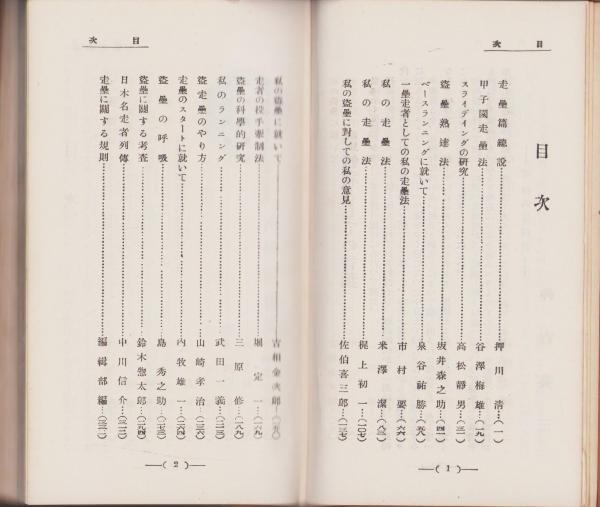 目次
目次
走壘篇總說……押川清…(一)
甲子園走壘法……谷澤梅雄…(一九)
スライデイングの研究……高松靜男…(三一)
盜壘熟達法……坂井森之助…(四一)
ベースランニングに就いて……泉谷祐勝…(五八)
一壘走者としての私の走壘法……市村要…(六六)
私の走壘法……米澤潔…(八三)
私の走壘法……梶上初一…(一〇七)
私の盜壘に對しての私の意見……佐伯喜三郎…(一三七)
(1)
目次
私の盜壘に就いて……吉相金次郎
走者の投手牽制法……堀定一…(一六九)
盜壘の科學的研究……三原修…(一八九)
私のランニング……武田一義…(二一三)
盜走壘のやり方……山崎孝治…(二三六)
走壘のスタートに就いて……內牧雄一…(二六四)
盜壘の呼吸……島秀之助…(二七三)
盜壘に關する考査……鈴木惣太郎…(二九四)
日本名走者列傳……中川信介…(三一二)
走壘に關する規則……編輯部編…(三二一)
(2)